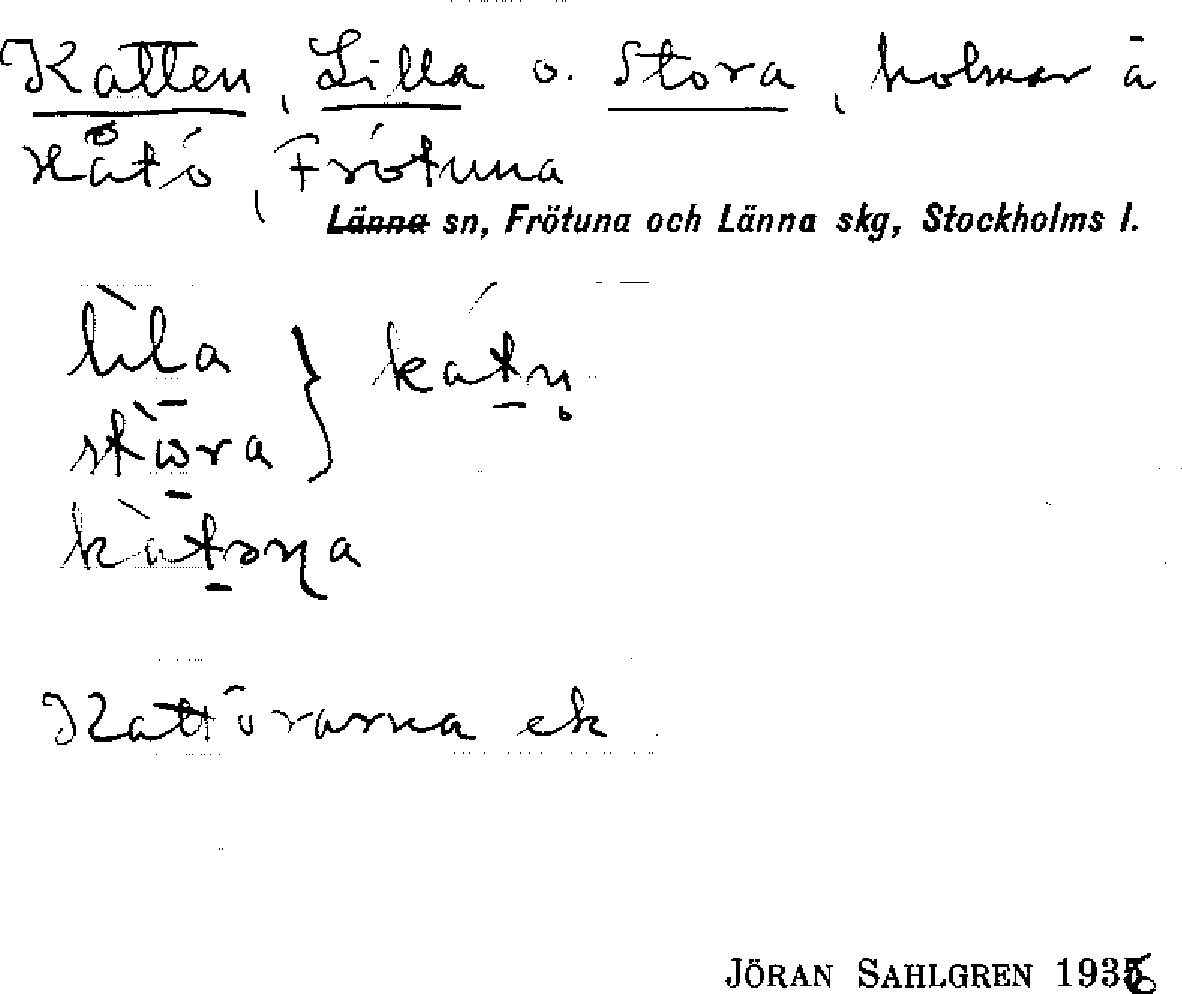 Katten, Lilla o. Stora, holmar å
Håtö, Frötuna
Länna sn, Frötuna och Länna skg, Stockholms l.
lìla } kátn̥
stòra
kàtəɳa
Kattörarna ek
JÖRAN SAHLGREN 1936